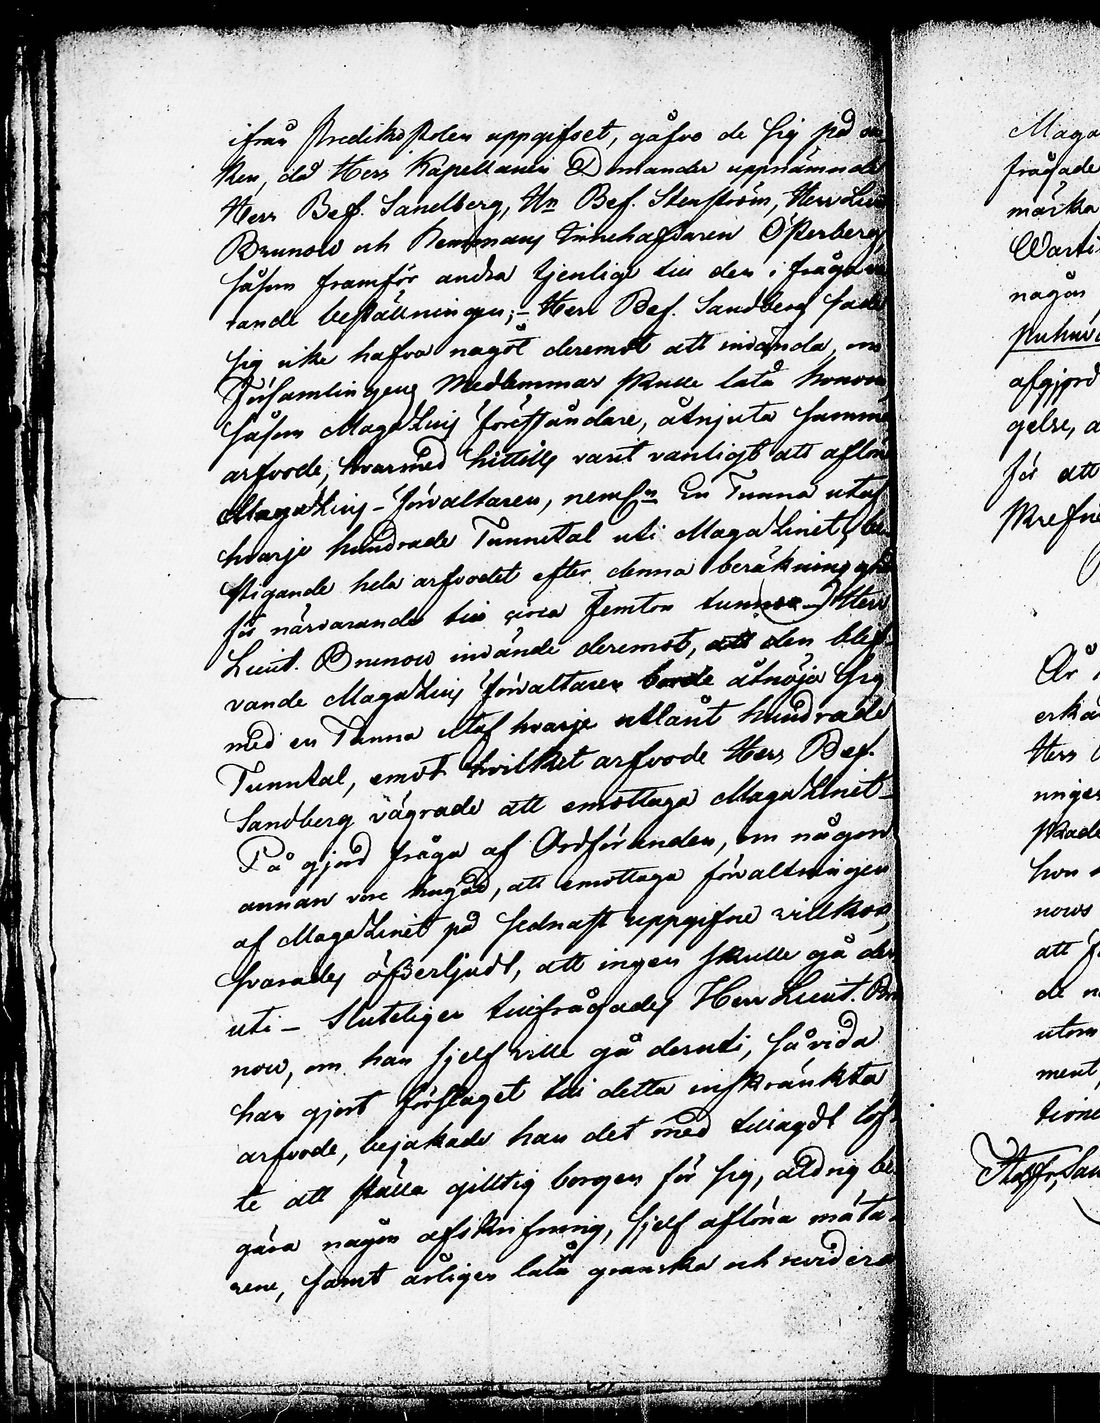 ifrån Predikostolen uppgifvet, gåfvo de sig på
ken, då Herr Kapellanen Demander uppnämnde
Herr Bef. Sandberg, Hr Bef. Stenström, Herr Lieu
Brunow och Hemmans Innehafvaren Österberg,
såsom framför andra tjenlige till den i fråga va
rande beställningen; – Herr Bef. Sandberg sade
sig icke hafva något deremot att invända, om
Församlingens Medlemmar skulle låta honom
såsom Magazins Föreståndare, åtnjuta samma
arfvode, hvarmed hittills varit vanligt att aflöna
Magazins-förvaltaren, neml. En Tunna utaf
hvarje hundrade Tunnetal uti Magazinet, be
stigande hela arfvodet efter denna beräkning
för närvarande till circa femton tunnor –) Herr
Lieut. Brunow invände deremot, att den blif-
vande Magazins förvaltaren borde åtnöja sig
med en Tunna utaf hvarje utlånt hundrade
Tunntal, emot hvilket arfvode Herr Bef.
Sandberg vägrade att emottaga Magazinet –
På gjord fråga af Ordföranden, om någon
annan vore hugad, att emottaga förvaltningen
af Magazinet på sednast uppgifne villkor,
svarades öfverljudt, att ingen skulle gå der
uti – Sluteligen tillfrågades Herr Lieut. Bru
now, om han sjelf ville gå deruti, såvida
han gjort förslaget till detta inskränkta
arfvode, bejakade han det med tillagdt löf-
te att ställa gilltig borgen för sig, aldrig be
gära någon afskrifning, sjelf aflöna mäta-
rene, samt årligen låta granska och revidera
Maga
frågade
märka
någon
afgjord
gelse, a
för att
skrefne
År
erkä
Herr
ninge
skade
hon
nows
att f
de n
utom
ment,
tione